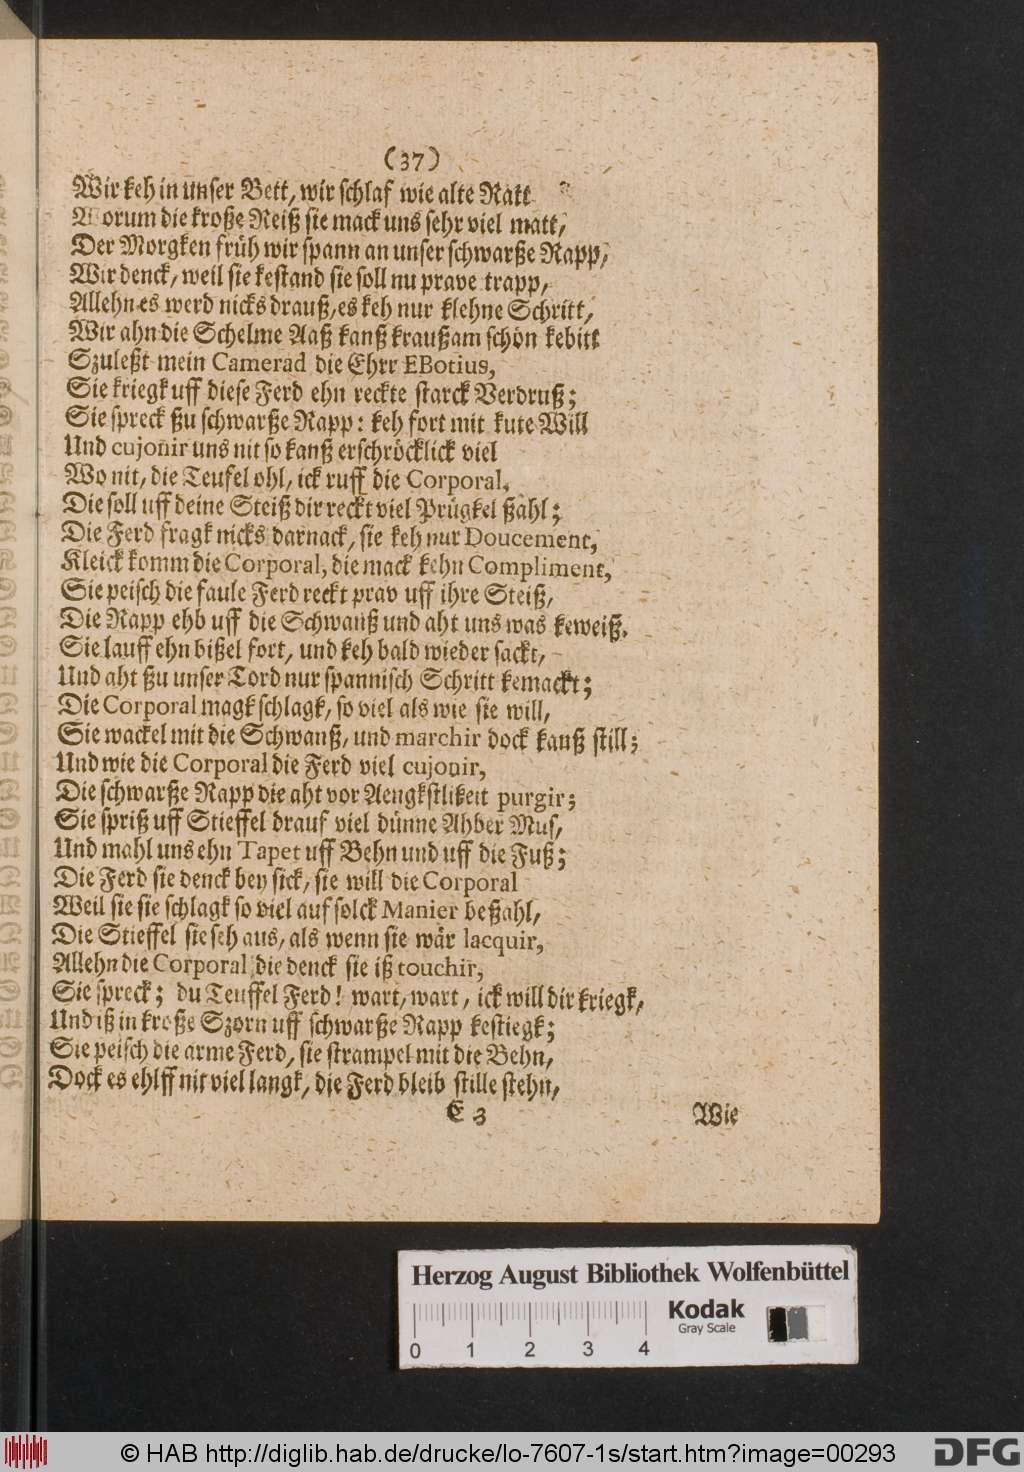 (37)
Wir keh in unser Bett, wir schlaf wie alte Ratt
Worum die kroße Reiß sie mack uns sehr viel matt,
Der Morgken früh wir spann an unser schwarße Rapp,
Wir denck, weil sie kestand sie soll nu prave trapp,
Allehn es werd nicks drauß, es keh nur klehne Schritt,
Wir ahn die Schelme Aaß kanß kraußam schön kebitt
Szuleßt mein Camerad die Ehrr EBotius,
Sie kriegk uff diese Ferd ehn reckte starck Verdruß;
Sie spreck ßu schwarße Rapp: keh fort mit kute Will
Und cujonir uns nit so kanß erschröcklick viel
Wo nit, die Teufel ohl, ick ruff die Corporal,
Die soll uff deine Steiß dir reckt viel Prügkel ßahl;
Die Ferd fragk nicks darnack, sie keh nur Doucement,
Kleick komm die Corporal, die mack kehn Compliment,
Sie peisch die faule Ferd reckt prav uff ihre Steiß,
Die Rapp ehb uff die Schwanß und aht uns was keweiß.
Sie lauff ehn bißel fort, und keh bald wieder sackt,
Und aht ßu unser Tord nur spannisch Schritt kemackt;
Die Corporal magk schlagk, so viel als wie sie will,
Sie wackel mit die Schwanß, und marchir dock kanß still;
Und wie die Corporal die Ferd viel cujonir,
Die schwarße Rapp die aht vor Aengkstlikeit purgir;
Sie spriß uff Stieffel drauf viel dünne Ahber Mus,
Und mahl uns ehn Tapet uff Behn und uff die Fuß;
Die Ferd sie denck bey sick, sie will die Corporal
Weil sie sie schlagk so viel auf solck Manier beßahl,
Die Stieffel sie seh aus, als wenn sie wär lacquir,
Allehn die Corporal die denck sie iß touchir,
Sie spreck; du Teuffel Ferd! wart, wart, ick will dir kriegk,
Und iß in kroße Szorn uff schwarße Rapp kestiegk;
Sie peisch die arme Ferd, sie strampel mit die Behn,
Dock es ehlff nit viel langk, die Ferd bleib stille stehn,
E 3 Wie
Herzog August Bibliothek Wolfenbüttel
Kodak
Gray Scale
0 1 2 3 4
© HAB http://diglib.hab.de/drucke/lo-7607-1s/start.htm?image=00293
DFG